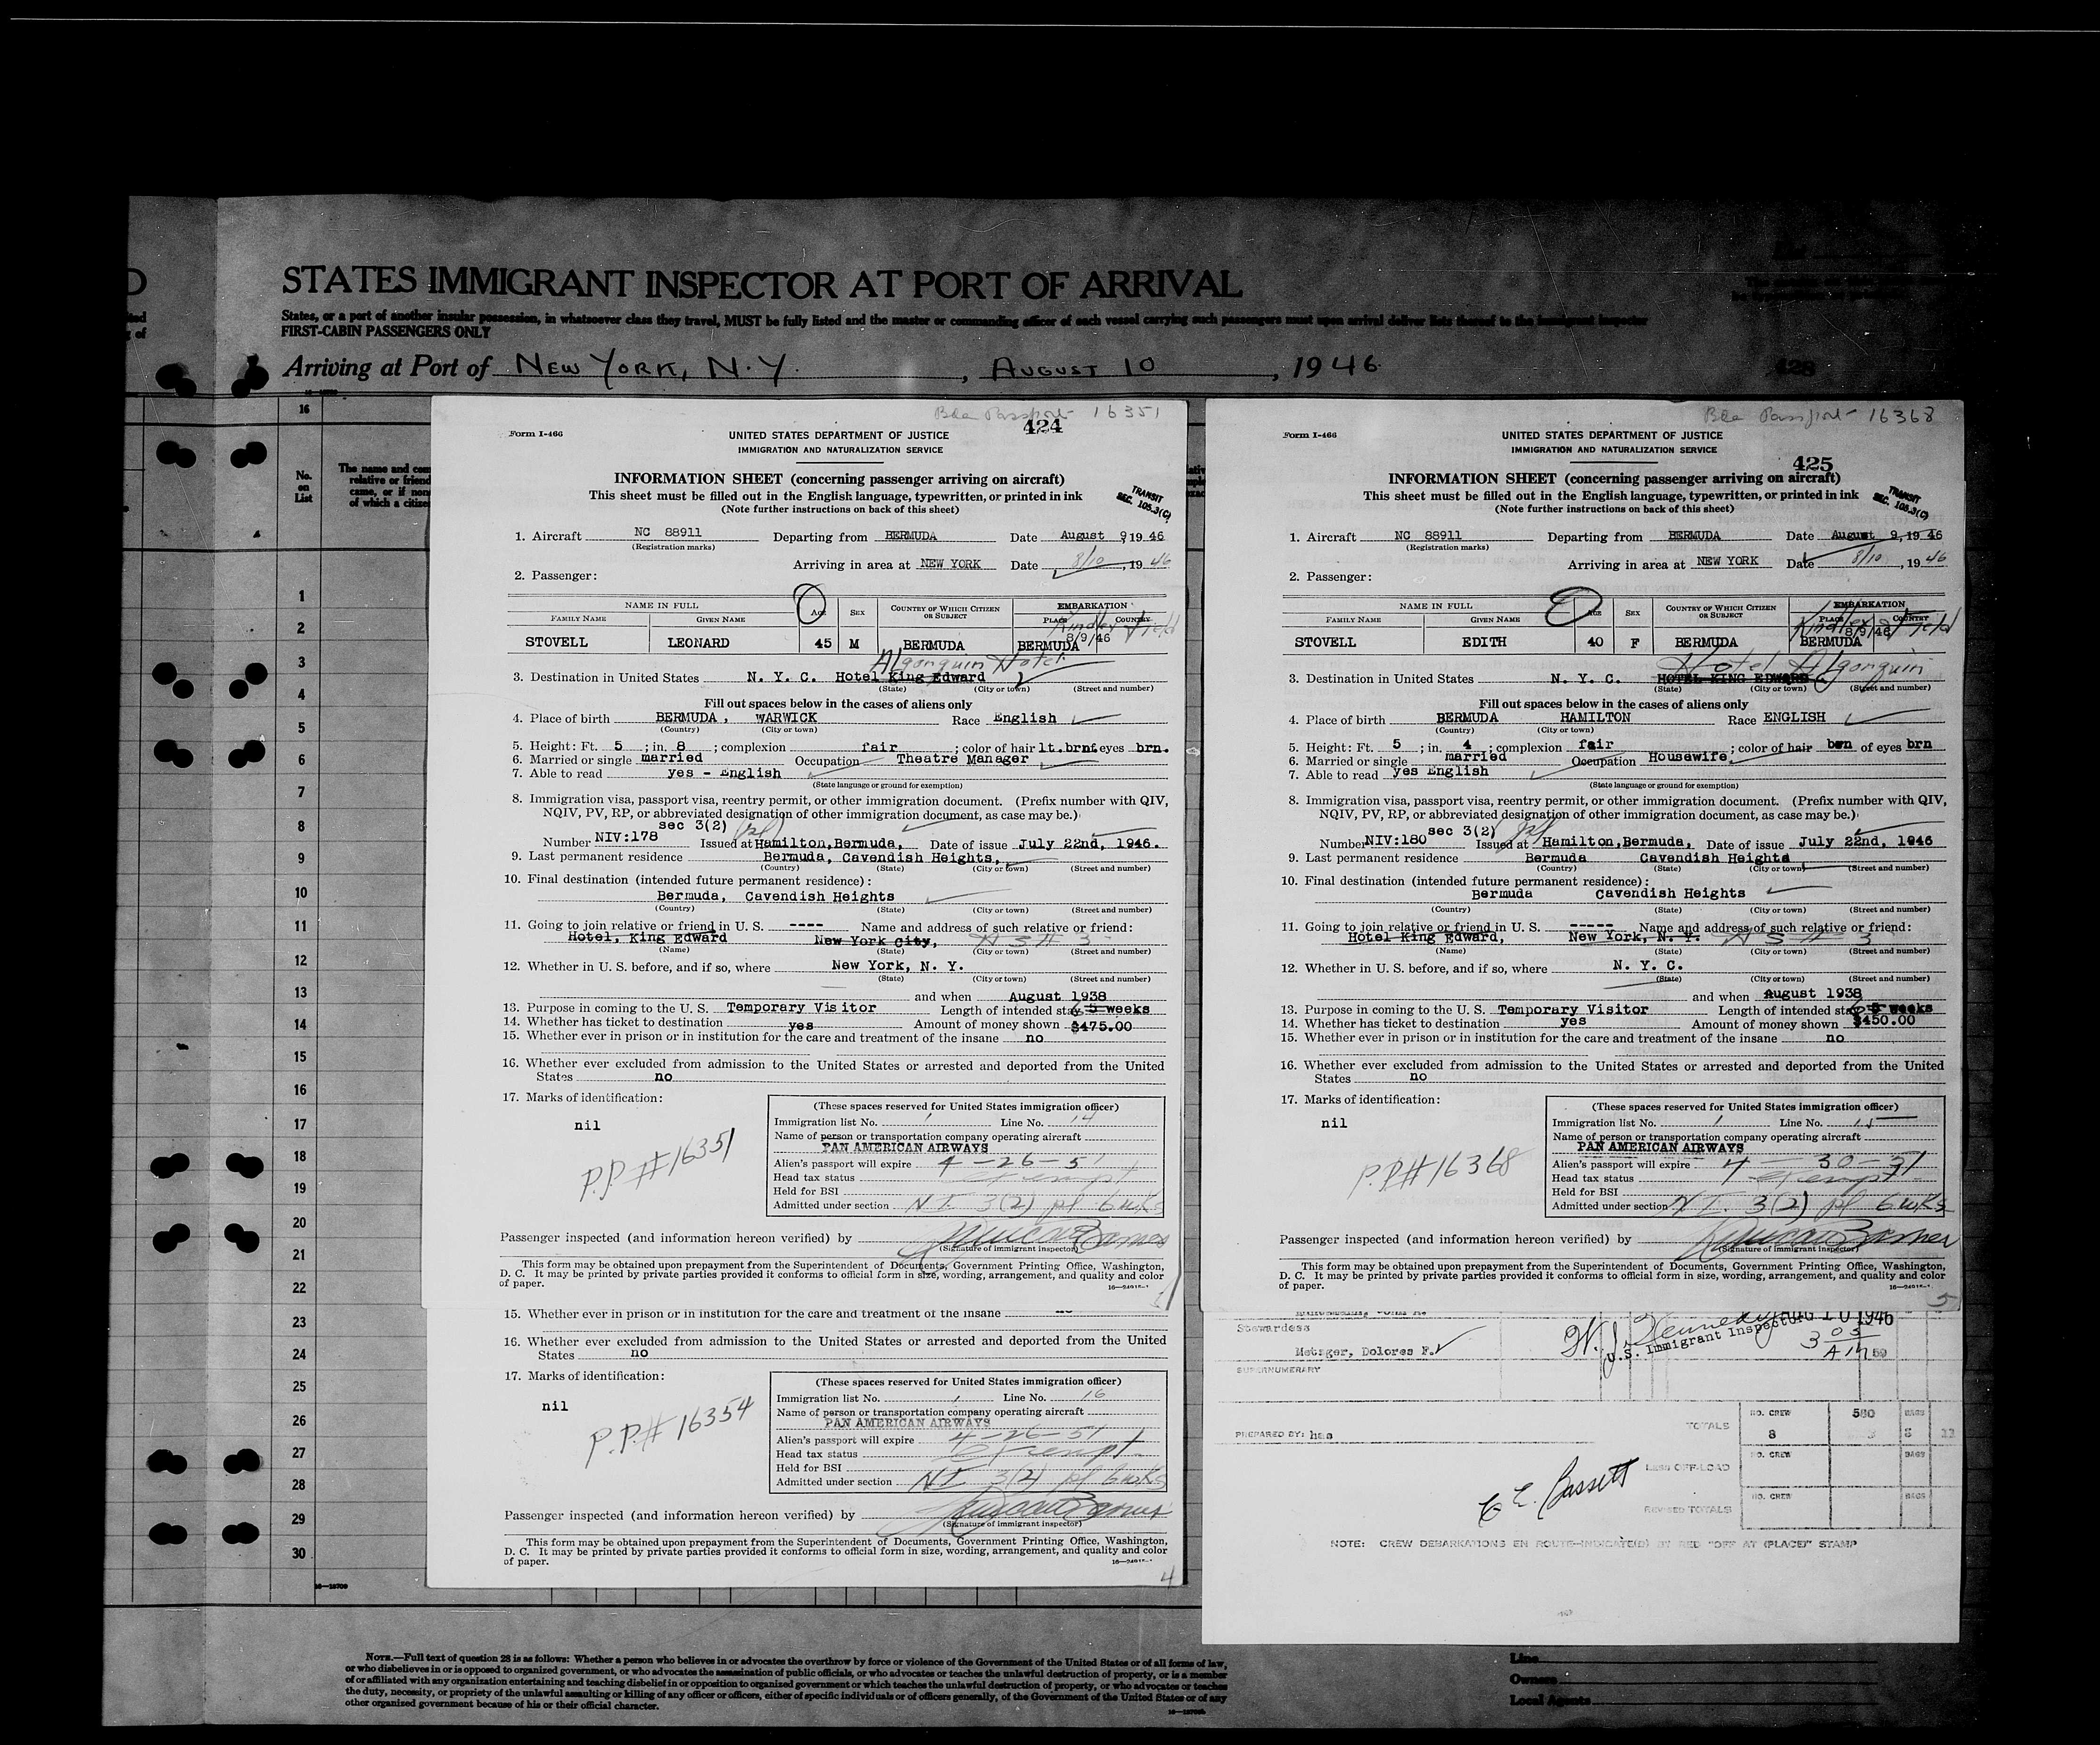 STATES IMMIGRANT INSPECTOR AT PORT OF ARRIVAL
States, or a part of another insular possession, in whatsoever class they travel, MUST be fully listed and the master or commanding officer of each vessel carrying such passengers must upon arrival deliver lists thereof to the immigrant inspector
FIRST-CABIN PASSENGERS ONLY
Arriving at Port of NEW YORK, N.Y. , AUGUST 10 , 1946
428
16
No. on List
The name and com
relative or friend
came, or if non
of which a citize
1
2
3
4
5
6
7
8
9
10
11
12
13
14
15
16
17
18
19
20
21
22
23
24
25
26
27
28
29
30
Bda Passport- 16351
424
Form I-466
UNITED STATES DEPARTMENT OF JUSTICE
IMMIGRATION AND NATURALIZATION SERVICE
INFORMATION SHEET (concerning passenger arriving on aircraft)
This sheet must be filled out in the English language, typewritten, or printed in ink
(Note further instructions on back of this sheet)
TRANSIT
SEC. 105.3(C)
1. Aircraft NC 88911 Departing from BERMUDA Date August 9, 19 46
(Registration marks)
Arriving in area at NEW YORK Date 8/10, 19 46
2. Passenger:
NAME IN FULL AGE SEX COUNTRY OF WHICH CITIZEN OR SUBJECT EMBARKATION
FAMILY NAME GIVEN NAME PLACE COUNTRY
Kindley Field
8/9/46
STOVELL LEONARD 45 M BERMUDA BERMUDA
Algonquin Hotel
3. Destination in United States N. Y. C. Hotel King Edward
(State) (City or town) (Street and number)
Fill out spaces below in the cases of aliens only
4. Place of birth BERMUDA, WARWICK Race English
(Country) (City or town)
5. Height: Ft. 5 ; in. 8 ; complexion fair ; color of hair lt.brn of eyes brn.
6. Married or single married Occupation Theatre Manager
7. Able to read yes - English
(State language or ground for exemption)
8. Immigration visa, passport visa, reentry permit, or other immigration document. (Prefix number with QIV,
NQIV, PV, RP, or abbreviated designation of other immigration document, as case may be.)
sec 3(2)
Number NIV:178 Issued at Hamilton,Bermuda, Date of issue July 22nd, 1946.
9. Last permanent residence Bermuda, Cavendish Heights,
(Country) (State) (City or town) (Street and number)
10. Final destination (intended future permanent residence):
Bermuda, Cavendish Heights
(Country) (State) (City or town) (Street and number)
11. Going to join relative or friend in U. S. ---- Name and address of such relative or friend:
Hotel, King Edward New York City,
(Name) (State) (City or town) (Street and number)
12. Whether in U. S. before, and if so, where New York, N. Y.
(State) (City or town) (Street and number)
and when August 1938
13. Purpose in coming to the U. S. Temporary Visitor Length of intended stay 6 5 weeks
14. Whether has ticket to destination yes Amount of money shown $475.00
15. Whether ever in prison or in institution for the care and treatment of the insane no
16. Whether ever excluded from admission to the United States or arrested and deported from the United
States no
17. Marks of identification:
nil
P.P.# 16351
(These spaces reserved for United States immigration officer)
Immigration list No. 1 Line No. 14
Name of person or transportation company operating aircraft
PAN AMERICAN AIRWAYS
Alien's passport will expire 4-26-51
Head tax status Exempt
Held for BSI
Admitted under section N.I. 3(2) pl 6 wks
Passenger inspected (and information hereon verified) by
(Signature of immigrant inspector)
This form may be obtained upon prepayment from the Superintendent of Documents, Government Printing Office, Washington,
D. C. It may be printed by private parties provided it conforms to official form in size, wording, arrangement, and quality and color
of paper.
15. Whether ever in prison or in institution for the care and treatment of the insane no
16. Whether ever excluded from admission to the United States or arrested and deported from the United
States no
17. Marks of identification:
nil
P.P.# 16354
(These spaces reserved for United States immigration officer)
Immigration list No. 1 Line No. 16
Name of person or transportation company operating aircraft
PAN AMERICAN AIRWAYS
Alien's passport will expire 4-26-51
Head tax status Exempt
Held for BSI
Admitted under section N.I. 3(2) pl 6 wks
Passenger inspected (and information hereon verified) by
(Signature of immigrant inspector)
This form may be obtained upon prepayment from the Superintendent of Documents, Government Printing Office, Washington,
D. C. It may be printed by private parties provided it conforms to official form in size, wording, arrangement, and quality and color
of paper.
4
Bda Passport- 16368
425
Form I-466
UNITED STATES DEPARTMENT OF JUSTICE
IMMIGRATION AND NATURALIZATION SERVICE
INFORMATION SHEET (concerning passenger arriving on aircraft)
This sheet must be filled out in the English language, typewritten, or printed in ink
(Note further instructions on back of this sheet)
TRANSIT
SEC. 105.3(C)
1. Aircraft NC 88911 Departing from BERMUDA Date August 9, 19 46
(Registration marks)
Arriving in area at NEW YORK Date 8/10, 19 46
2. Passenger:
NAME IN FULL AGE SEX COUNTRY OF WHICH CITIZEN OR SUBJECT EMBARKATION
FAMILY NAME GIVEN NAME PLACE COUNTRY
Kindley Field
8/9/46
STOVELL EDITH 40 F BERMUDA BERMUDA
Hotel Algonquin
3. Destination in United States N. Y. C. HOTEL KING EDWARD
(State) (City or town) (Street and number)
Fill out spaces below in the cases of aliens only
4. Place of birth BERMUDA HAMILTON Race ENGLISH
(Country) (City or town)
5. Height: Ft. 5 ; in. 4 ; complexion fair ; color of hair brn of eyes brn
6. Married or single married Occupation Housewife
7. Able to read yes English
(State language or ground for exemption)
8. Immigration visa, passport visa, reentry permit, or other immigration document. (Prefix number with QIV,
NQIV, PV, RP, or abbreviated designation of other immigration document, as case may be.)
sec 3(2)
Number NIV:180 Issued at Hamilton,Bermuda, Date of issue July 22nd, 1946
9. Last permanent residence Bermuda Cavendish Heights
(Country) (State) (City or town) (Street and number)
10. Final destination (intended future permanent residence):
Bermuda Cavendish Heights
(Country) (State) (City or town) (Street and number)
11. Going to join relative or friend in U. S. ----- Name and address of such relative or friend:
Hotel King Edward, New York, N. Y.
(Name) (State) (City or town) (Street and number)
12. Whether in U. S. before, and if so, where N. Y. C.
(State) (City or town) (Street and number)
and when August 1938
13. Purpose in coming to the U. S. Temporary Visitor Length of intended stay 6 5 weeks
14. Whether has ticket to destination yes Amount of money shown $450.00
15. Whether ever in prison or in institution for the care and treatment of the insane no
16. Whether ever excluded from admission to the United States or arrested and deported from the United
States no
17. Marks of identification:
nil
P.P.# 16368
(These spaces reserved for United States immigration officer)
Immigration list No. 1 Line No. 15
Name of person or transportation company operating aircraft
PAN AMERICAN AIRWAYS
Alien's passport will expire 4-30-51
Head tax status Exempt
Held for BSI
Admitted under section N.I. 3(2) pl 6 wks
Passenger inspected (and information hereon verified) by
(Signature of immigrant inspector)
This form may be obtained upon prepayment from the Superintendent of Documents, Government Printing Office, Washington,
D. C. It may be printed by private parties provided it conforms to official form in size, wording, arrangement, and quality and color
of paper.
5
Stewardess
Metzger, Dolores F.
W. J. Kennedy AUG 10 1946
U.S. Immigrant Inspector
SUPERNUMERARY
TOTALS NO. CREW 8 580 BAGS
PREPARED BY: has
LESS OFF-LOAD NO. CREW BAGS
REVISED TOTALS NO. CREW BAGS
C E. Bassett
NOTE: CREW DEBARKATIONS EN ROUTE-INDICATE(D) BY RED "OFF AT (PLACE)" STAMP
NOTE.—Full text of question 28 is as follows: Whether a person who believes in or advocates the overthrow by force or violence of the Government of the United States or of all forms of law,
or who disbelieves in or is opposed to organized government, or who advocates the assassination of public officials, or who advocates or teaches the unlawful destruction of property, or is a member
of or affiliated with any organization entertaining and teaching disbelief in or opposition to organized government or which teaches the unlawful destruction of property, or who advocates or teaches
the duty, necessity, or propriety of the unlawful assaulting or killing of any officer or officers, either of specific individuals or of officers generally, of the Government of the United States or of any
other organized government because of his or their official character.
Line
Owners
Local Agents